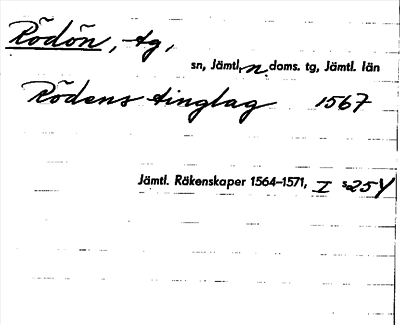 Rödön, tg,
sn, Jämtl. n. doms. tg, Jämtl. län
Rödens tinglag 1567
Jämtl. Räkenskaper 1564–1571, I s